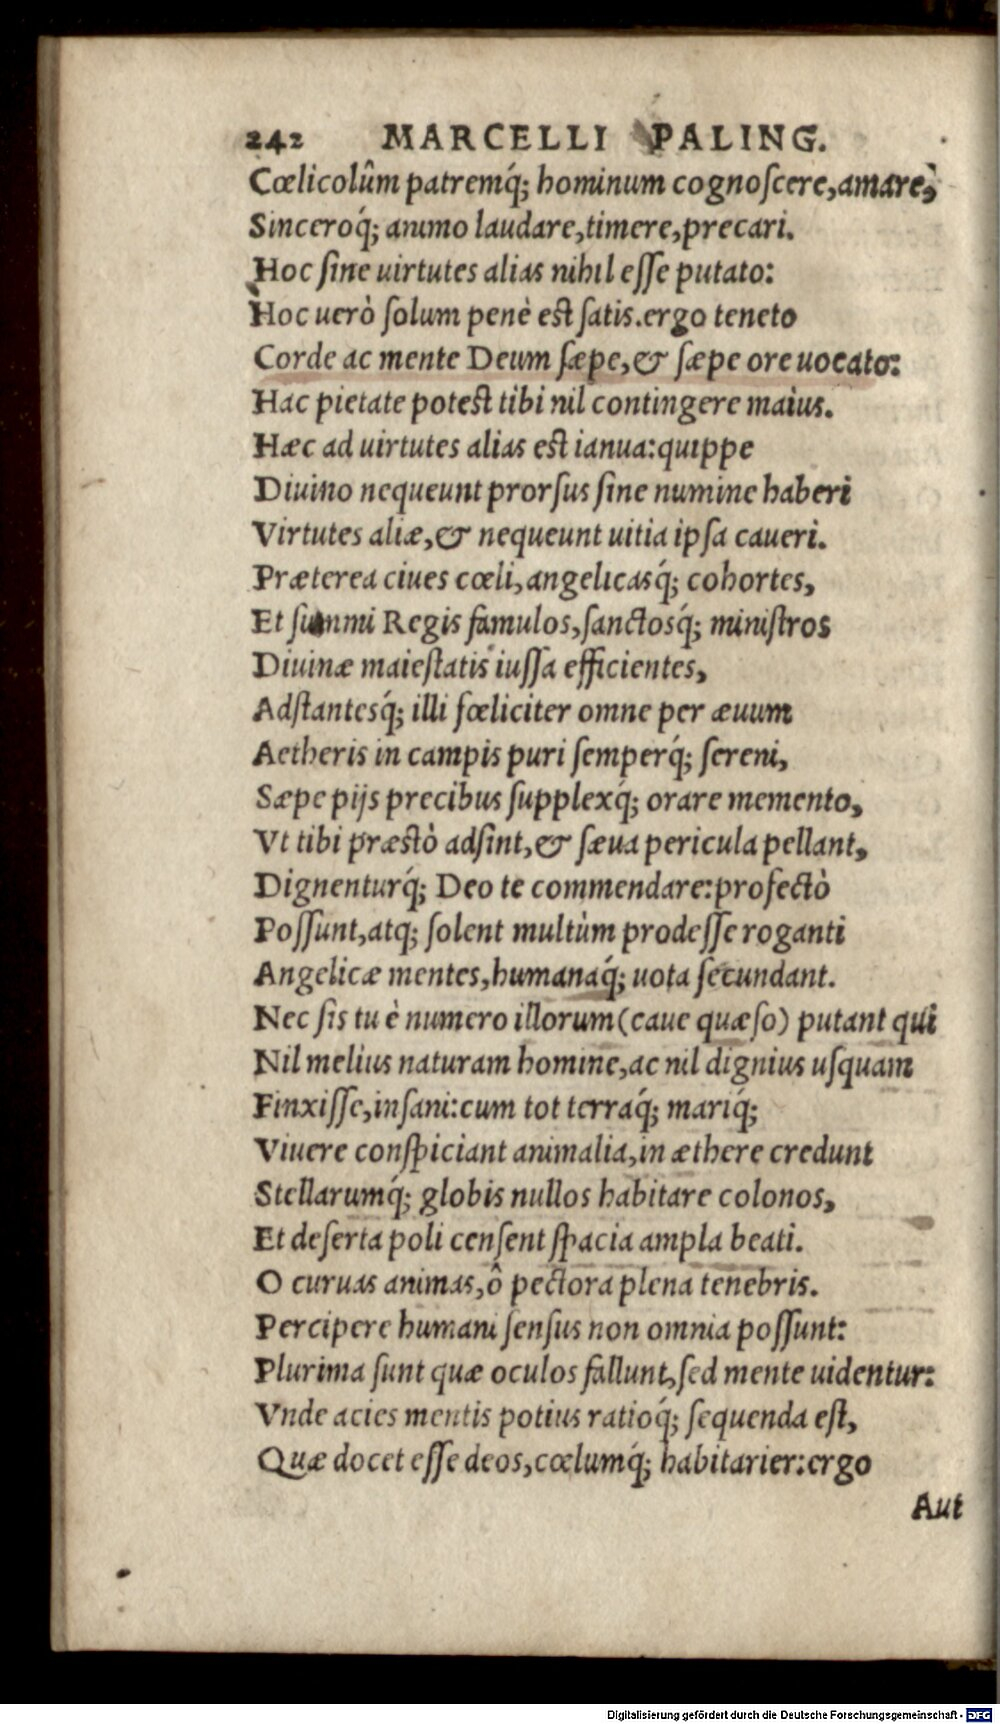 242 MARCELLI PALING.
Cœlicolûm patremq́; hominum cognoſcere, amare,
Sinceroq́; animo laudare, timere, precari.
Hoc ſine uirtutes alias nihil eſſe putato:
Hoc uerò ſolum penè eſt ſatis. ergo teneto
Corde ac mente Deum ſæpe, & ſæpe ore uocato:
Hac pietate poteſt tibi nil contingere maius.
Hæc ad uirtutes alias eſt ianua: quippe
Diuino nequeunt prorſus ſine numine haberi
Virtutes aliæ, & nequeunt uitia ipſa caueri.
Præterea ciues cœli, angelicasq́; cohortes,
Et ſummi Regis famulos, ſanctosq́; miniſtros
Diuinæ maieſtatis iuſſa efficientes,
Adſtantesq́; illi fœliciter omne per æuum
Aetheris in campis puri ſemperq́; ſereni,
Sæpe pijs precibus ſupplexq́; orare memento,
Vt tibi præſtò adſint, & ſæua pericula pellant,
Dignenturq́; Deo te commendare: profectò
Poſſunt, atq; ſolent multùm prodeſſe roganti
Angelicæ mentes, humanaq́; uota ſecundant.
Nec ſis tu è numero illorum (caue quæſo) putant qui
Nil melius naturam homine, ac nil dignius uſquam
Finxiſſe, inſani: cum tot terraq́; mariq́;
Viuere conſpiciant animalia, in æthere credunt
Stellarumq́; globis nullos habitare colonos,
Et deſerta poli cenſent ſpacia ampla beati.
O curuas animas, ô pectora plena tenebris.
Percipere humani ſenſus non omnia poſſunt:
Plurima ſunt quæ oculos fallunt, ſed mente uidentur:
Vnde acies mentis potius ratioq́; ſequenda eſt,
Quæ docet eſſe deos, cœlumq́; habitarier: ergo
Aut
Digitalisierung gefördert durch die Deutsche Forschungsgemeinschaft - DFG